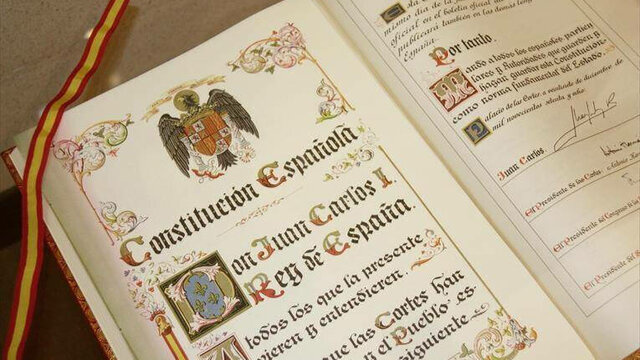 Constitución Española
Don Juan Carlos I.
Rey de España.
A todos los que la presente
vieren y entendieren.
que las Cortes han
y el Pueblo es-
siguiente
mismo día de la
oficial en el boletín oficial
publicará también en las demás
España.
Por tanto,
Mando a todos los españoles, particu
lares y Autoridades que guarden y
hagan guardar esta Constitución
como norma fundamental del Estado.
Palacio de las Cortes, a
de diciembre de
mil novecientos
y ocho.
Juan Carlos
El Presidente de las Cortes
El Presidente del Congreso de los
El Presidente del